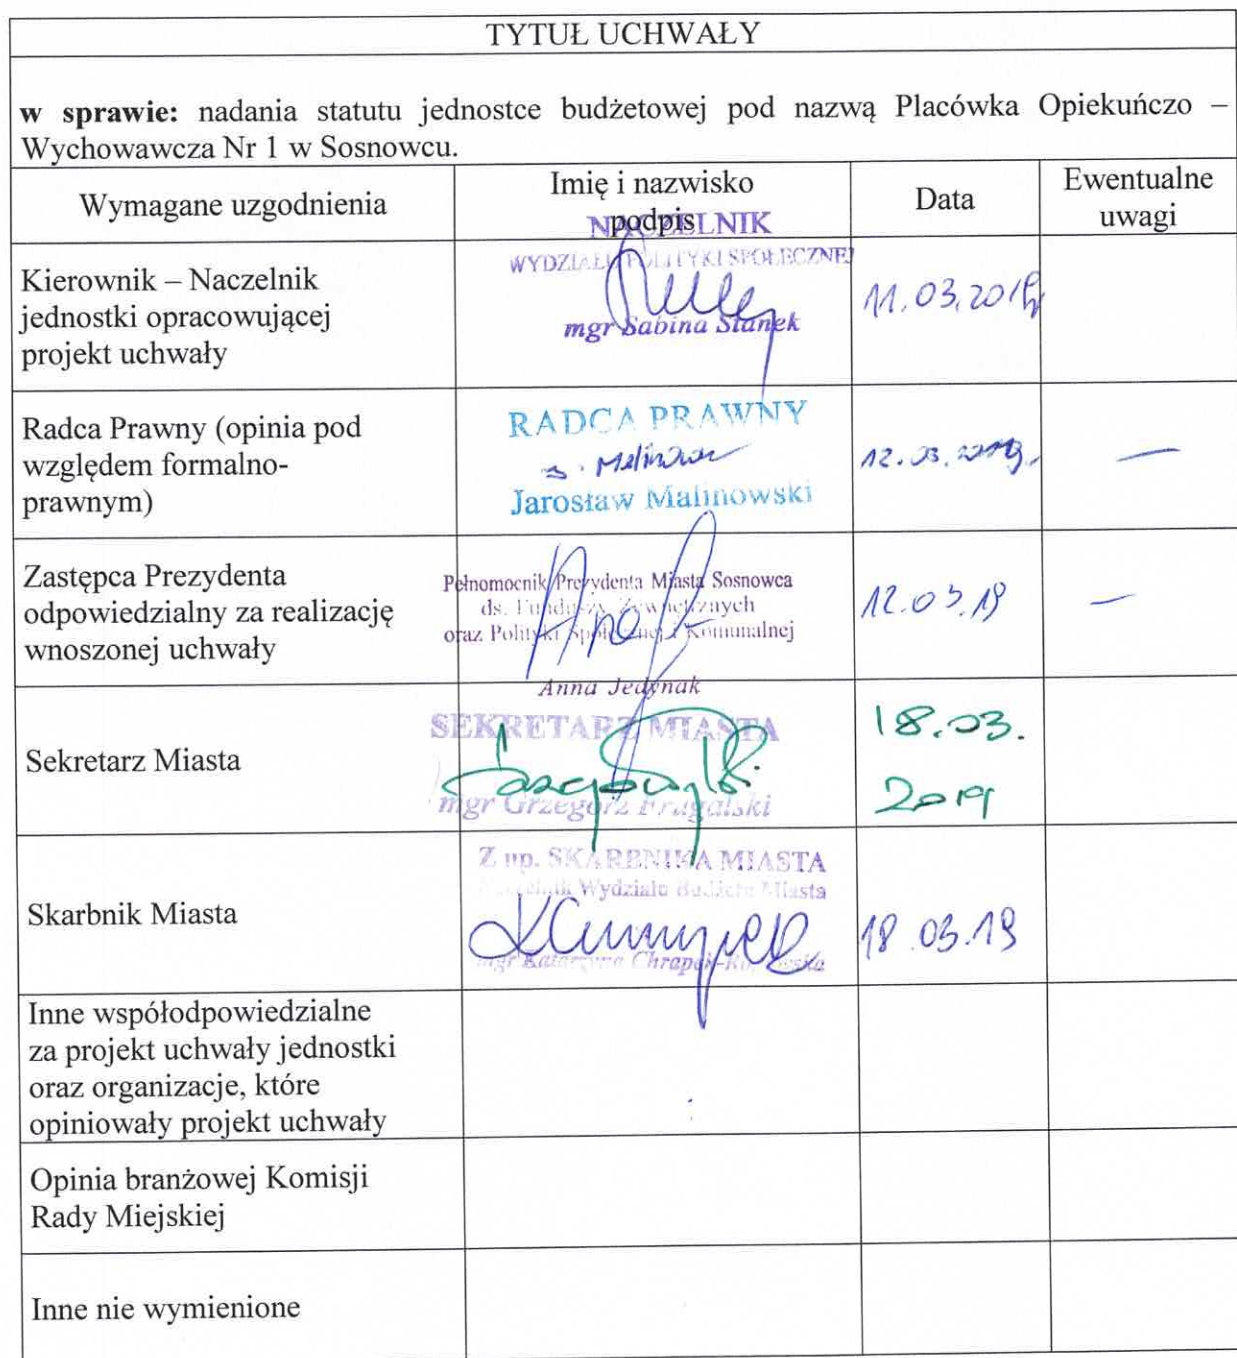 TYTUŁ UCHWAŁY
w sprawie: nadania statutu jednostce budżetowej pod nazwą Placówka Opiekuńczo –
Wychowawcza Nr 1 w Sosnowcu.
Wymagane uzgodnienia
Imię i nazwisko
podpis
Data
Ewentualne
uwagi
Kierownik – Naczelnik
jednostki opracowującej
projekt uchwały
NACZELNIK
WYDZIAŁU POLITYKI SPOŁECZNEJ
mgr Sabina Stanek
11.03.2019
Radca Prawny (opinia pod
względem formalno-
prawnym)
RADCA PRAWNY
Jarosław Malinowski
12.03.2019.
—
Zastępca Prezydenta
odpowiedzialny za realizację
wnoszonej uchwały
Pełnomocnik Prezydenta Miasta Sosnowca
ds. Funduszy Zewnętrznych
oraz Polityki Społecznej i Komunalnej
Anna Jedynak
12.03.19
—
Sekretarz Miasta
SEKRETARZ MIASTA
mgr Grzegorz
18.03.
2019
Skarbnik Miasta
Z up. SKARBNIKA MIASTA
Naczelnik Wydziału Budżetu Miasta
mgr Katarzyna
18.03.19
Inne współodpowiedzialne
za projekt uchwały jednostki
oraz organizacje, które
opiniowały projekt uchwały
Opinia branżowej Komisji
Rady Miejskiej
Inne nie wymienione